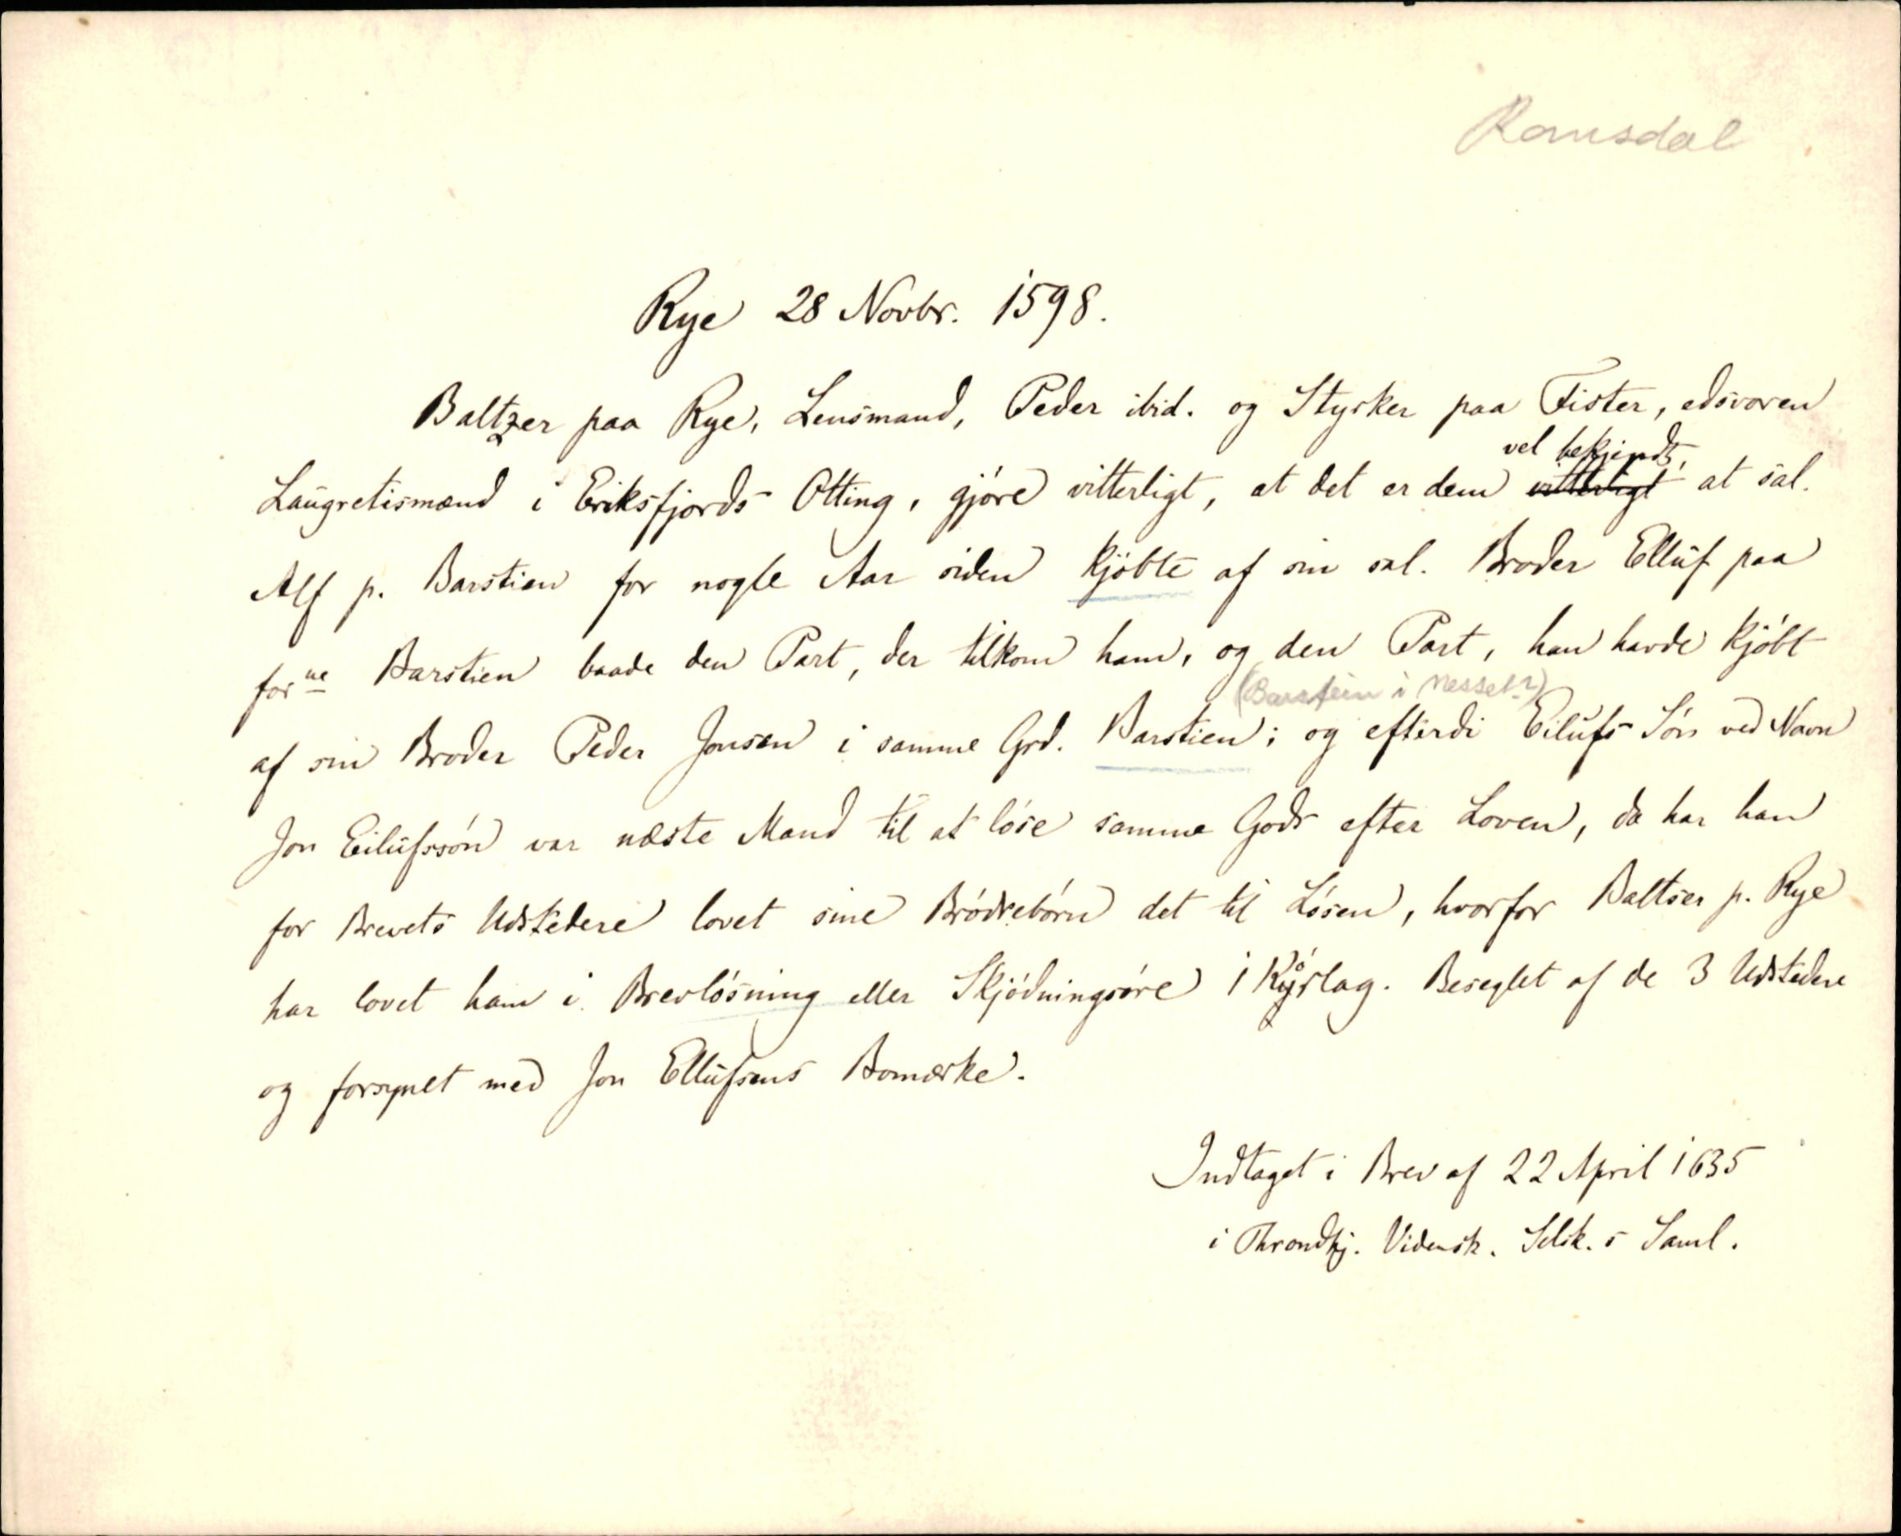 Romsdal
Rye 28 Novbr. 1598.
Baltzer paa Rye, Lensmand, Peder ibid. og Styrker paa Fister, edsvoren
vel bekjendt,
Laugretismænd i Eriksfjords Otting, gjöre vitterligt, at det er dem vitterligt at sal.
Alf p. Barstien for nogle Aar siden kjöbte af sin sal. Broder Elluf paa
forne Barstien baade den Part, der tilkom ham, og den Part, han havde kjöbt
(Barstein i Nesset?)
af sin Broder Peder Jonsen i samme Grd. Barstien; og efterdi Eilufs Sön ved Navn
Jon Eilufssön var næste Mand til at löse samme Gods efter Loven, da har han
for Brevets Udstedere lovet sine Brödrebörn det til Lösen, hvorfor Baltser p. Rye
har lovet ham i Brevlösning eller Skjödningsöre 1 Kyrlag. Beseglet af de 3 Udstedere
og forsynet med Jon Ellufsens Bomærke.
Indtaget i Brev af 22 April 1635
i Throndhj. Vidensk. Selsk.s Saml.